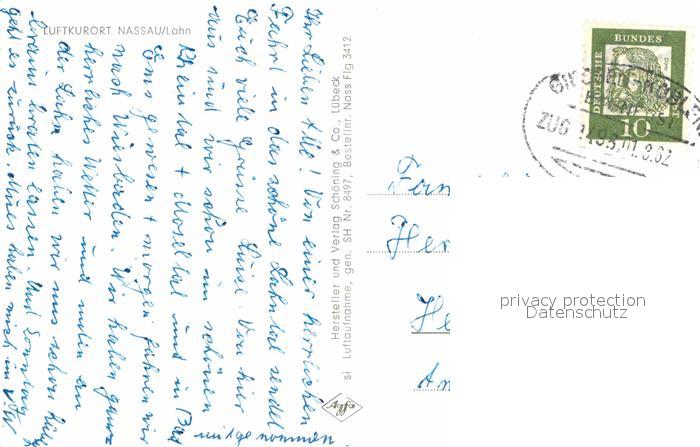 LUFTKURORT NASSAU/Lahn
Ihr Lieben Alle! Von einer herrlichen
Fahrt in das schöne Lahntal sendet
Euch viele Grüsse Luise. Von hier
aus sind wir schon im schönen
Rheintal + Moseltal und in Bad
Ems gewesen + morgen fahren wir
nach Wiesbaden. Wir haben ganz
herrliches Wetter und unten an
der Lahn haben wir uns schon
braun braten lassen. Und Sonntag
geht es zurück. Alles haben
genommen
Hersteller und Verlag Schöning & Co., Lübeck
si Luftaufnahme, gen. SH Nr. 8497, Bestellnr. Nass Flg 3412
Agfa
DEUTSCHE BUNDES
10
ZUG
8.62
Fam
Her
He
An
privacy protection
Datenschutz